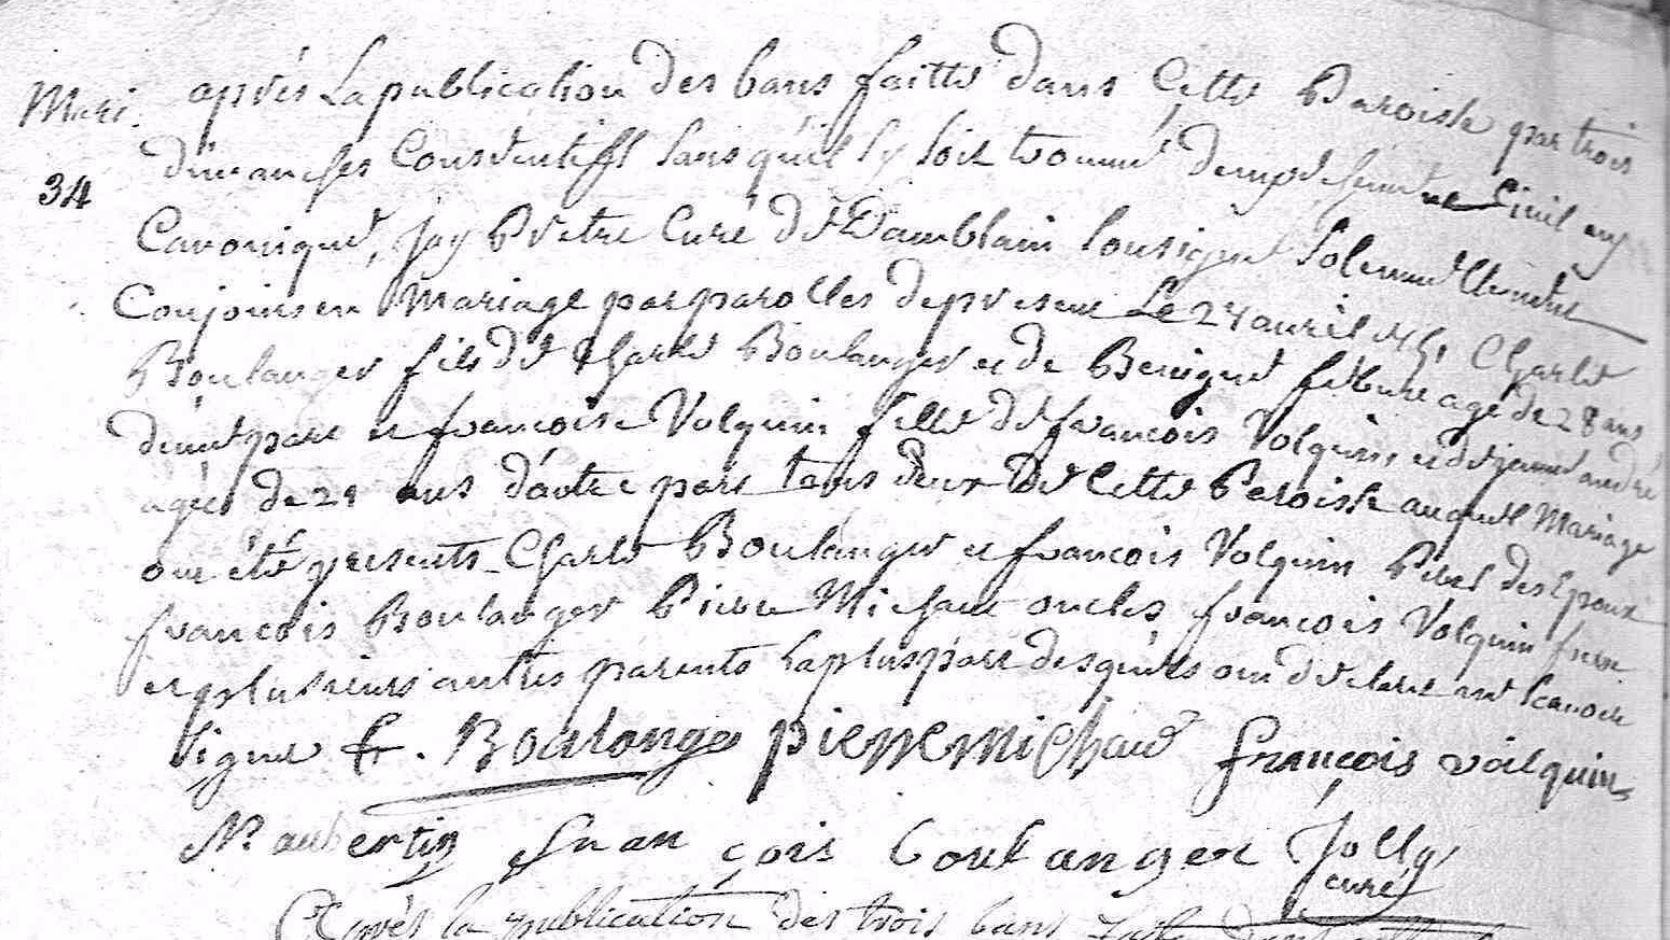 Mari. après La publication des bans faitte dans Cette Paroisse par trois
34 dimanches Consecutifs sans qu'il sy soit trouvé dempeschement ne Civil ny
Canonique, jay Pretre Curé de Damblain sousigné solemnellement
Conjoins en Mariage par parolles de present Le avril Charle
Boulanger fils de Charle Boulanger et de Benigne agé de 28 ans
dunepart et francoise Volquin fille de francois Volquin, et de jeanne andré
agée de 21 ans d'autre part tous deux de Cette Paroisse auquel Mariage
ont été presents Charle Boulanger et francois Volquin Peres des Epoux
francois Boulanger Pierre Michaut oncles francois Volquin frere
et plusieurs autres parents la pluspart desquels ont declaré ne scavoir
signer . Boulonge pierre michaud françois voilquin
N. aubertin fran çois boulanger Jolly
curé
Après la publication des trois bans